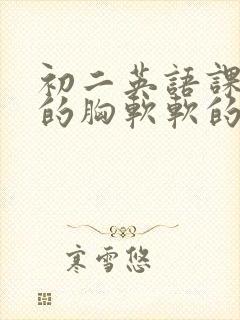 初二英語課
的胸軟軟的
寒雪悠